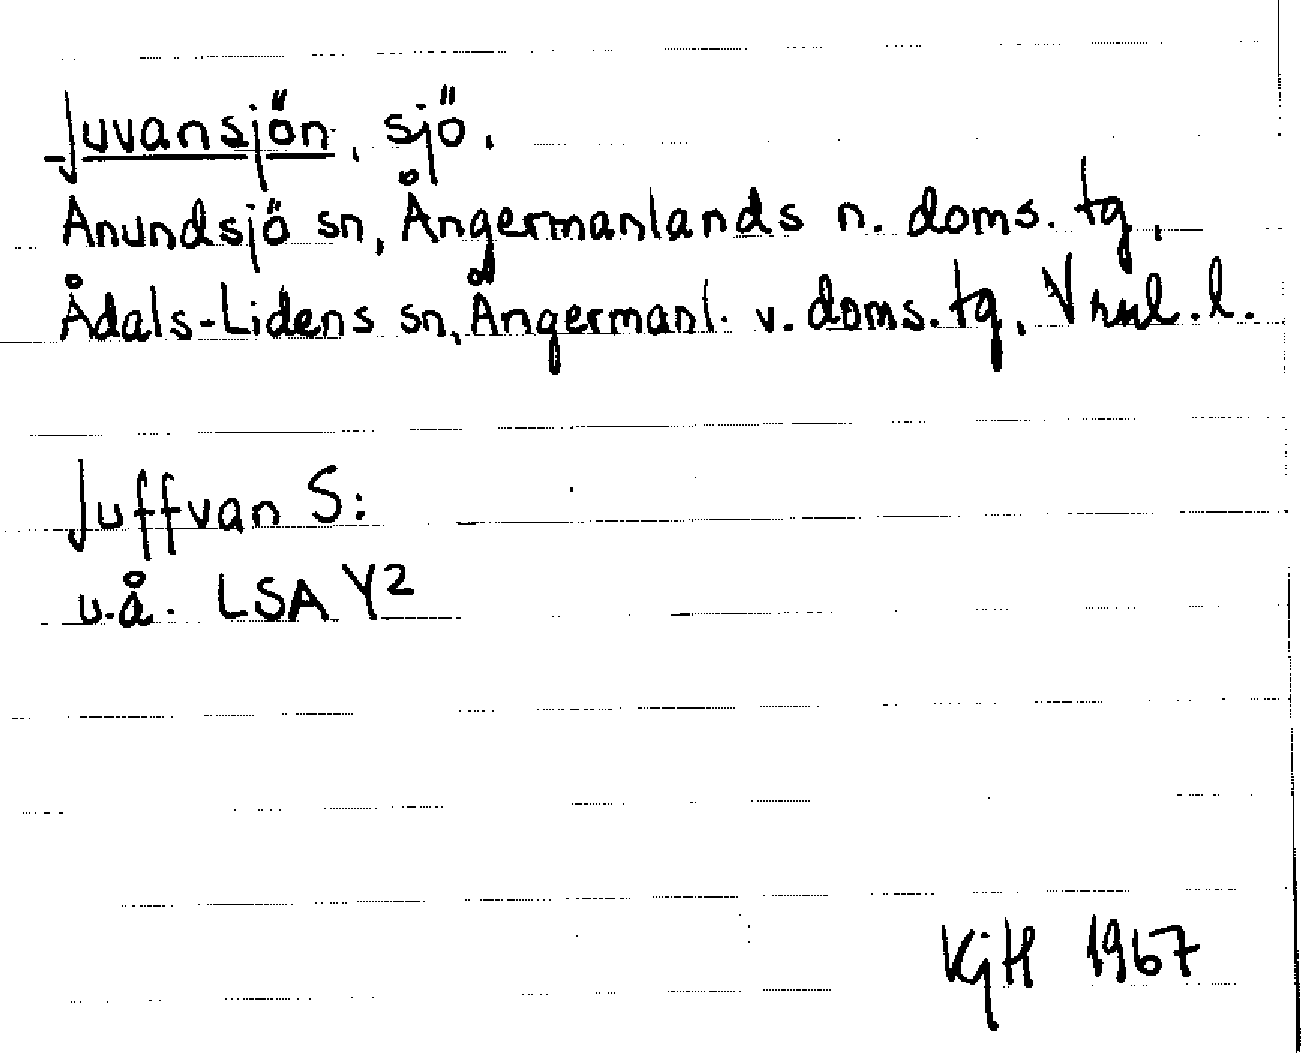 Juvansjön, sjö.
Anundsjö sn, Ångermanlands n. doms. tg,
Ådals-Lidens sn, Ångermanl. v. doms. tg, Vrnl. l.
Juffvan S:
u.å. LSA Y2
KjH 1967